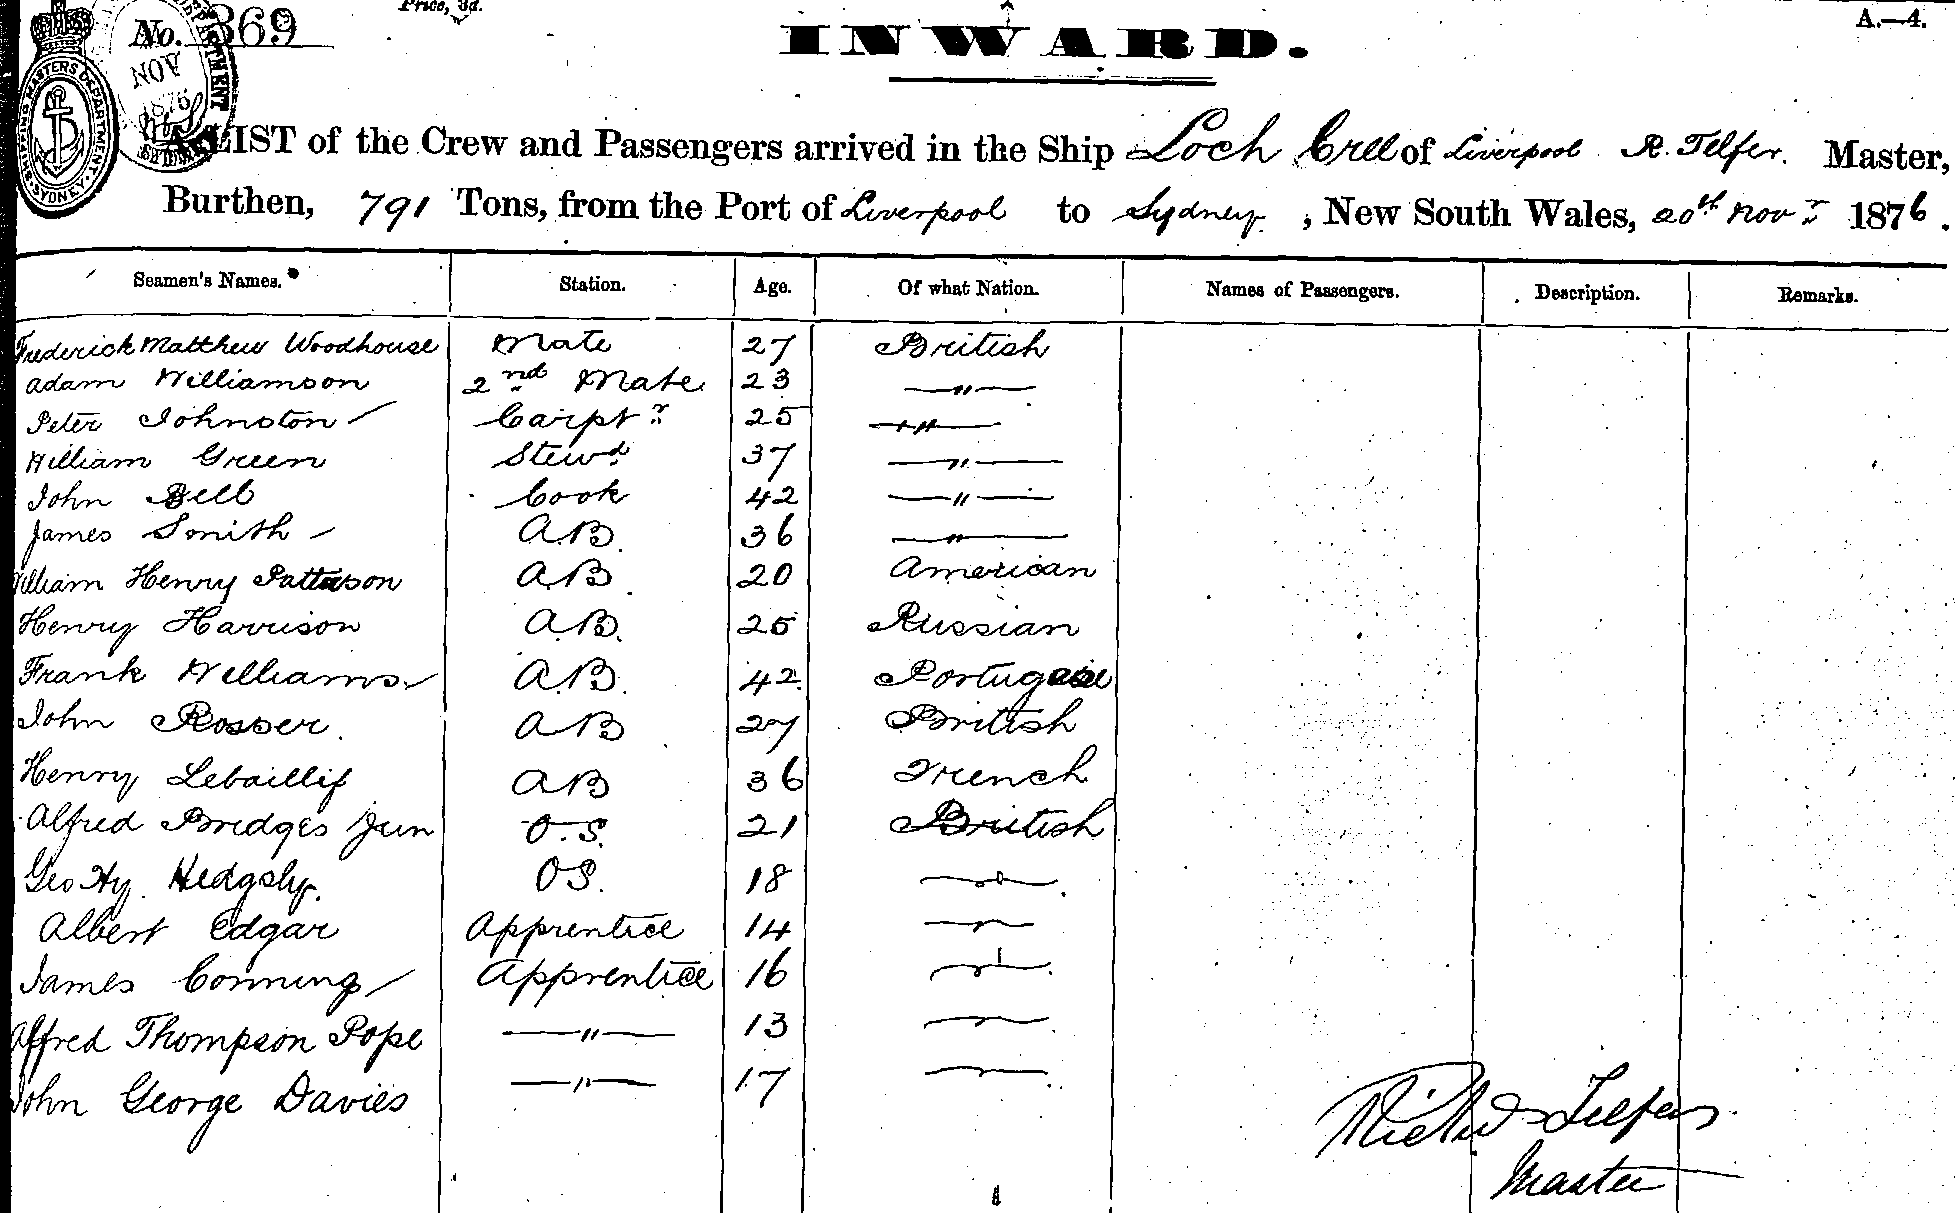 No. 369
Price, 3d.
INWARD.
A.—4.
SHIPPING MASTERS DEPARTMENT. SYDNEY.
NOV
1876
A LIST of the Crew and Passengers arrived in the Ship Loch Cree of Liverpool R. Telfer. Master,
Burthen, 791 Tons, from the Port of Liverpool to Sydney, New South Wales, 20th Novr 1876.
Seamen's Names. Station. Age. Of what Nation. Names of Passengers. Description. Remarks.
Frederick Matthew Woodhouse Mate 27 British
Adam Williamson 2nd Mate 23 —"—
Peter Johnston Carptr 25 —"—
William Green Stewd 37 —"—
John Bell Cook 42 —"—
James Smith A.B. 36 —"—
William Henry Patterson A.B. 20 American
Henry Harrison A.B. 25 Russian
Frank Williams A.B. 42 Portugese
John Rosser. A B 27 British
Henry Lebaillif A B 36 French
Alfred Bridges Jun O.S. 21 British
Geo Hy. Hedgsly. OS. 18 —"—
Albert Edgar Apprentice 14 —"—
James Conning Apprentice 16 —"—
Alfred Thompson Pope —"— 13 —"—
John George Davies —"— 17 —"—
Richd Telfer
Master